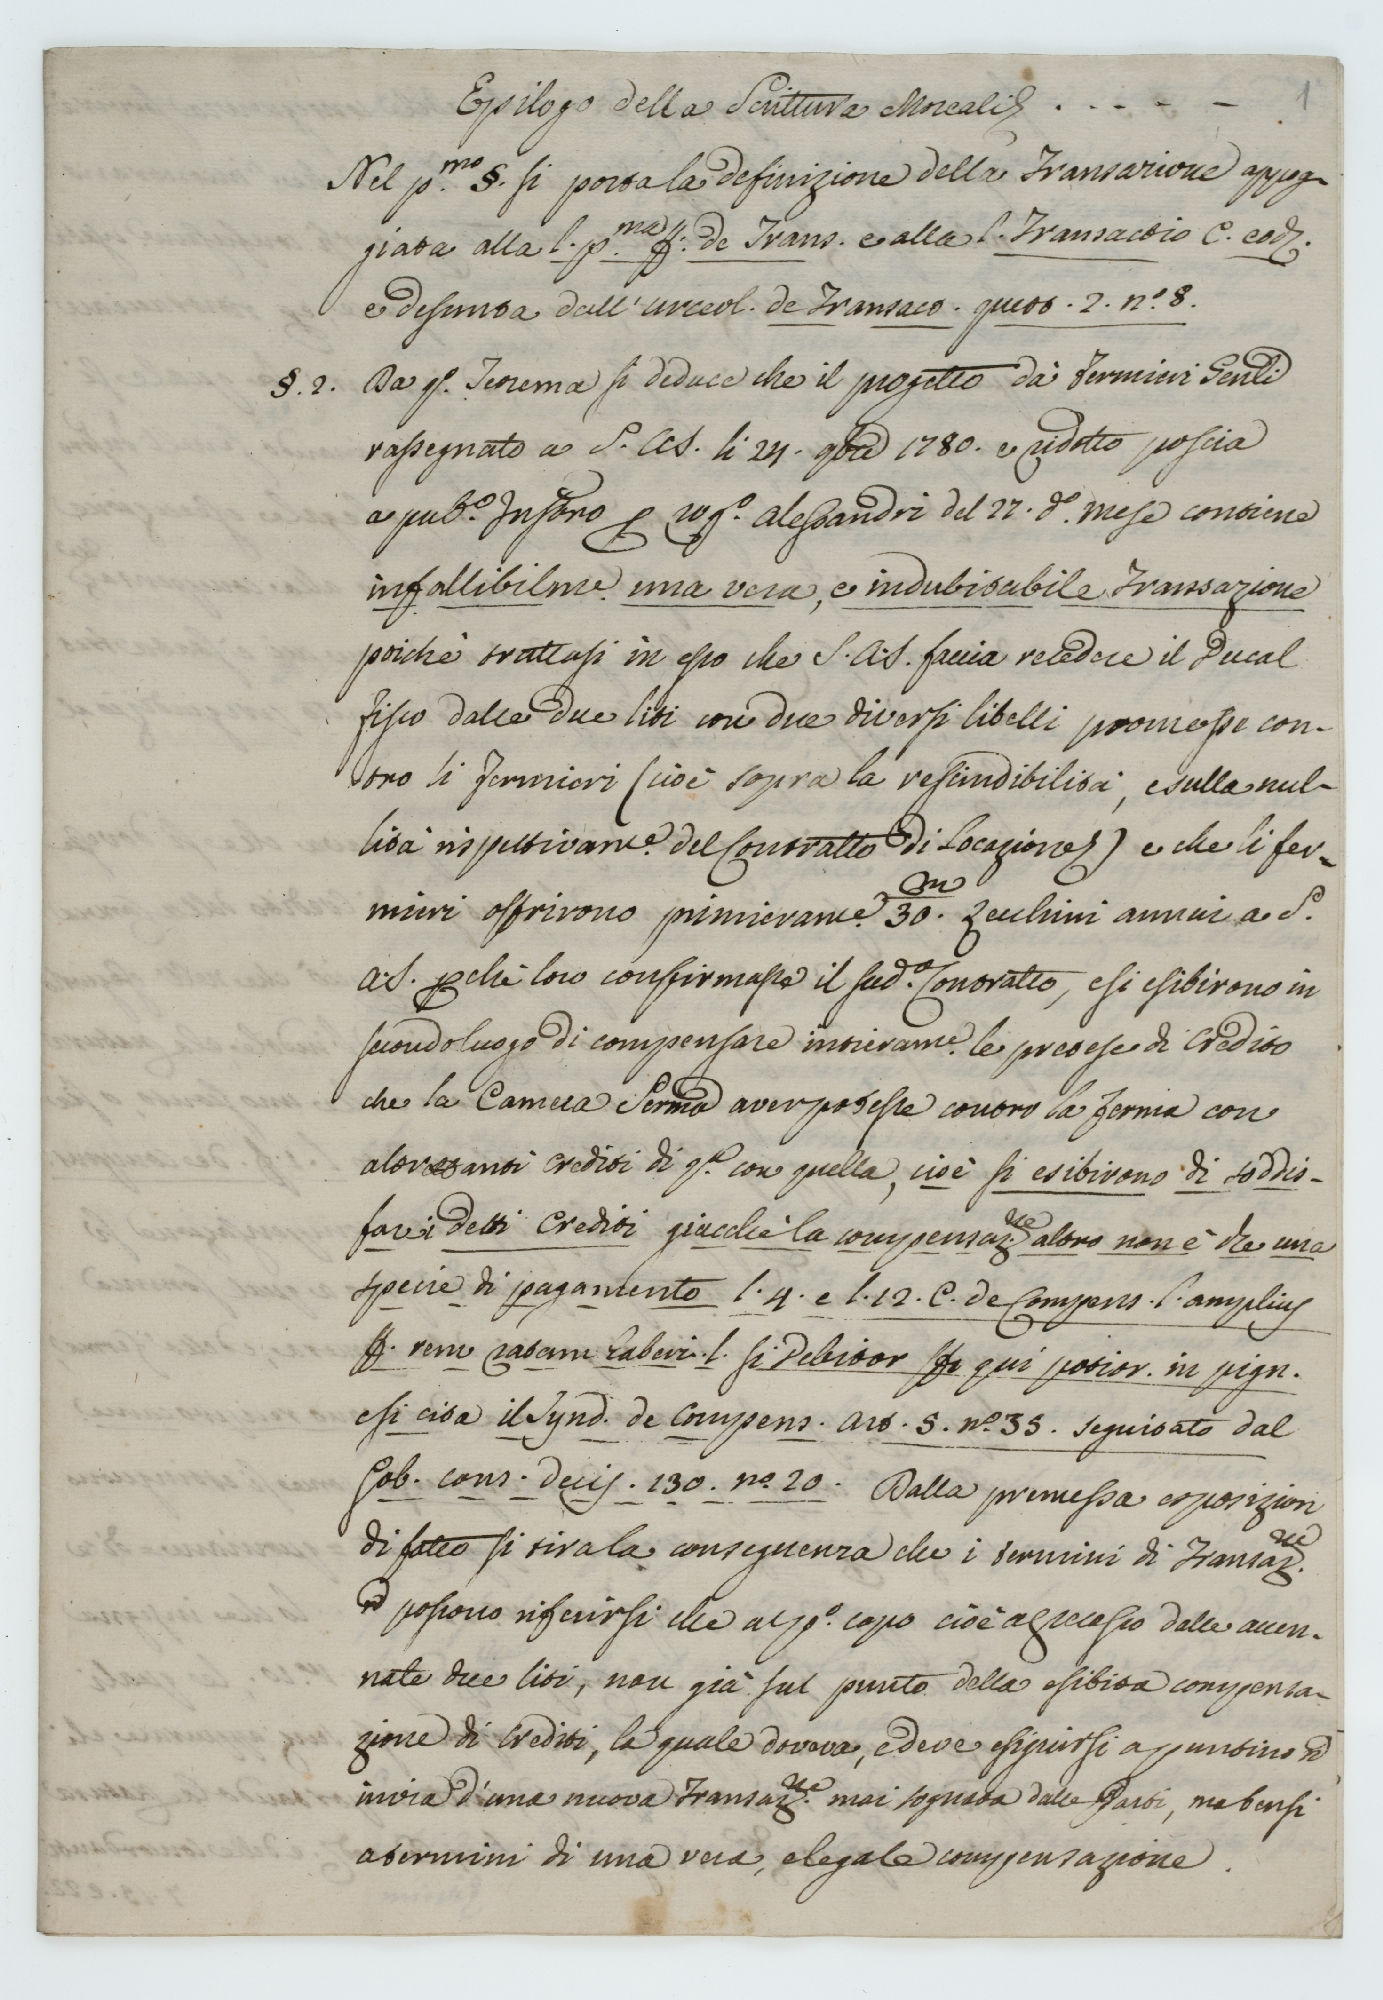 Epilogo della Scrittura Morcalis . . - - - 1
Nel p.mo §. si porta la definizione della Transazione appog-
giata alla l. p.ma ff. de Trans. e alla l. Transactio C. eod.
e desunta dall' Urceol. de Transact. quest. 2. n.° 8.
§. 2. Da q.o Teorema si deduce che il progetto dà Fermieri Genli
rassegnato a S. A.S. li 24. 9bre 1780. e ridotto poscia
a pub.o Instro p rog.o Alessandri del 27. d.o mese contiene
infallibilme. una vera, e indubitabile Transazione
poichè trattasi in esso che S. A.S. faccia recedere il Ducal
Fisco dalle due liti con due diversi libelli promosse con-
tro li Fermieri (cioè sopra la rescindibilità, e sulla nul-
lità rispettivame. del Contratto di Locazione) e che li fer-
mieri offrirono primierame. 30.m Zecchini annui a S.
A.S. pchè loro confirmasse il sud.o Contratto, e si esibirono in
secondo luogo di compensare intierame. le pretese di Credito
che la Camera Serma aver potesse contro la Ferma con
altrettanti crediti di q.a con quella, cioè si esibirono di soddis-
fare i detti Crediti giacchè la compensaz.ne altro non è che una
specie di pagamento l. 4. e l. 12. C. de Compens. l. amplius
ff. rem ratam haberi. l. si Debitor ff. qui potior. in pign.
e si cita il Synd. de Compens. art. 5. n.° 35. seguitato dal
Gob. cons. decis. 130. n.° 20. Dalla premessa esposizion
di fatto si tira la conseguenza che i termini di Transaz.ne
possono riferirsi che al p.o capo cioè al recesso dalle accen-
nate due liti, non già sul punto della esibita compensa-
zione di Crediti, la quale doveva, e deve esiguirsi appuntino
in via d'una nuova Transaz.ne mai sognata dalle Parti, ma bensì
a termini di una vera, e legale compensazione.